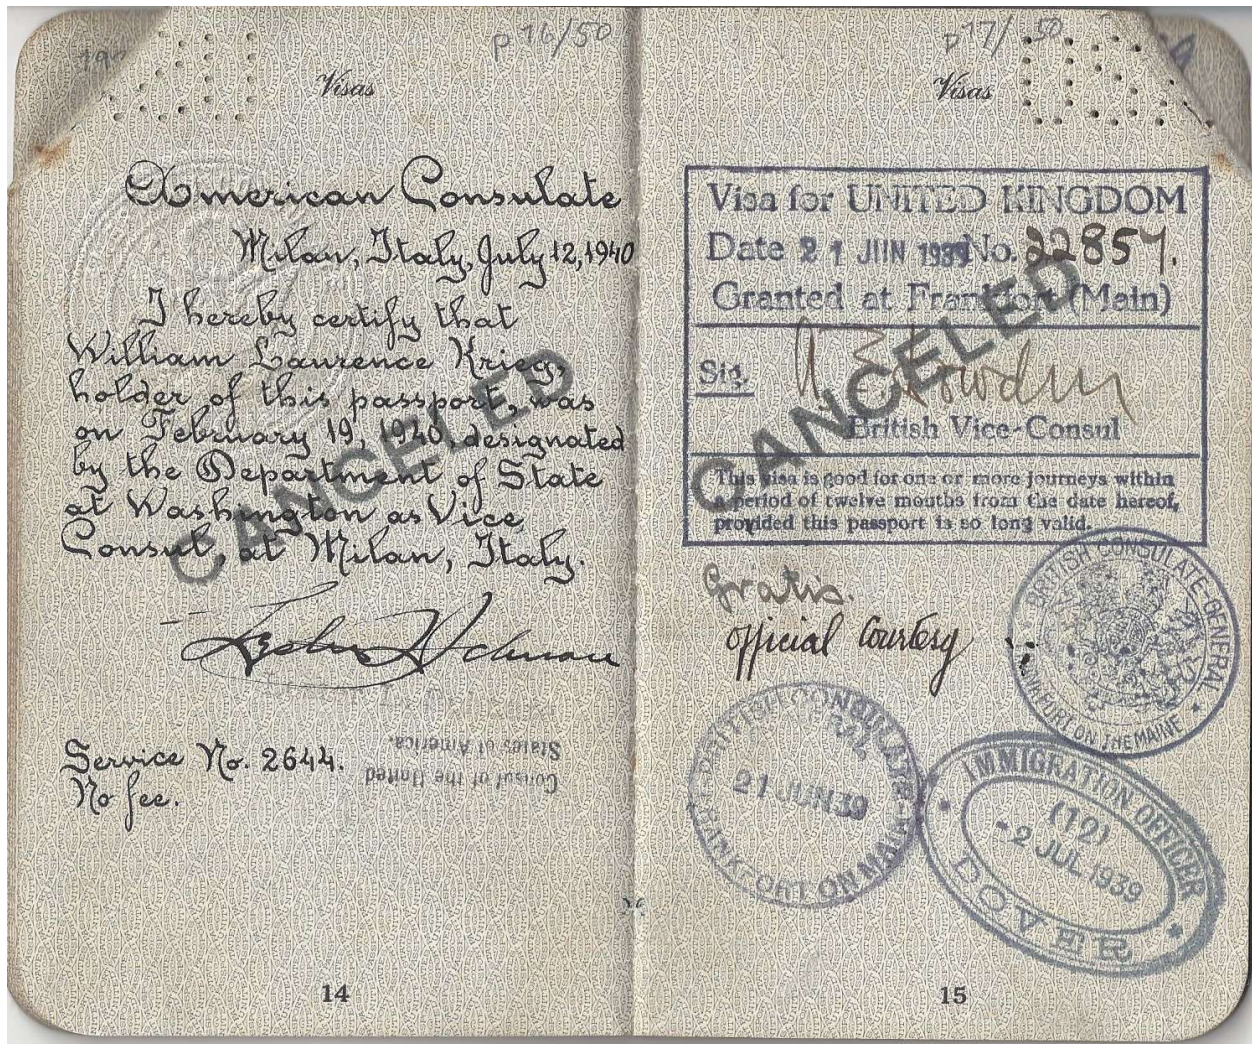 p 16/50
Visas
American Consulate
Milan, Italy, July 12, 1940
I hereby certify that
William Laurence Krieg,
holder of this passport, was
on February 19, 1940, designated
by the Department of State
at Washington as Vice
Consul, at Milan, Italy.
CANCELED
Service No. 2644.
No fee.
Consul of the United
States of America.
14
p 17/50
Visas
Visa for UNITED KINGDOM
Date 21 JUN 1939 No. 22857.
Granted at Frankfort (Main)
Sig.
British Vice-Consul
This visa is good for one or more journeys within
a period of twelve months from the date hereof,
provided this passport is so long valid.
CANCELED
Gratis.
official Courtesy
BRITISH CONSULATE-GENERAL
FRANKFORT ON THE MAINE
BRITISH CONSULATE
21 JUN 39
FRANKFORT ON MAIN
IMMIGRATION OFFICER
(12)
2 JUL 1939
DOVER
15